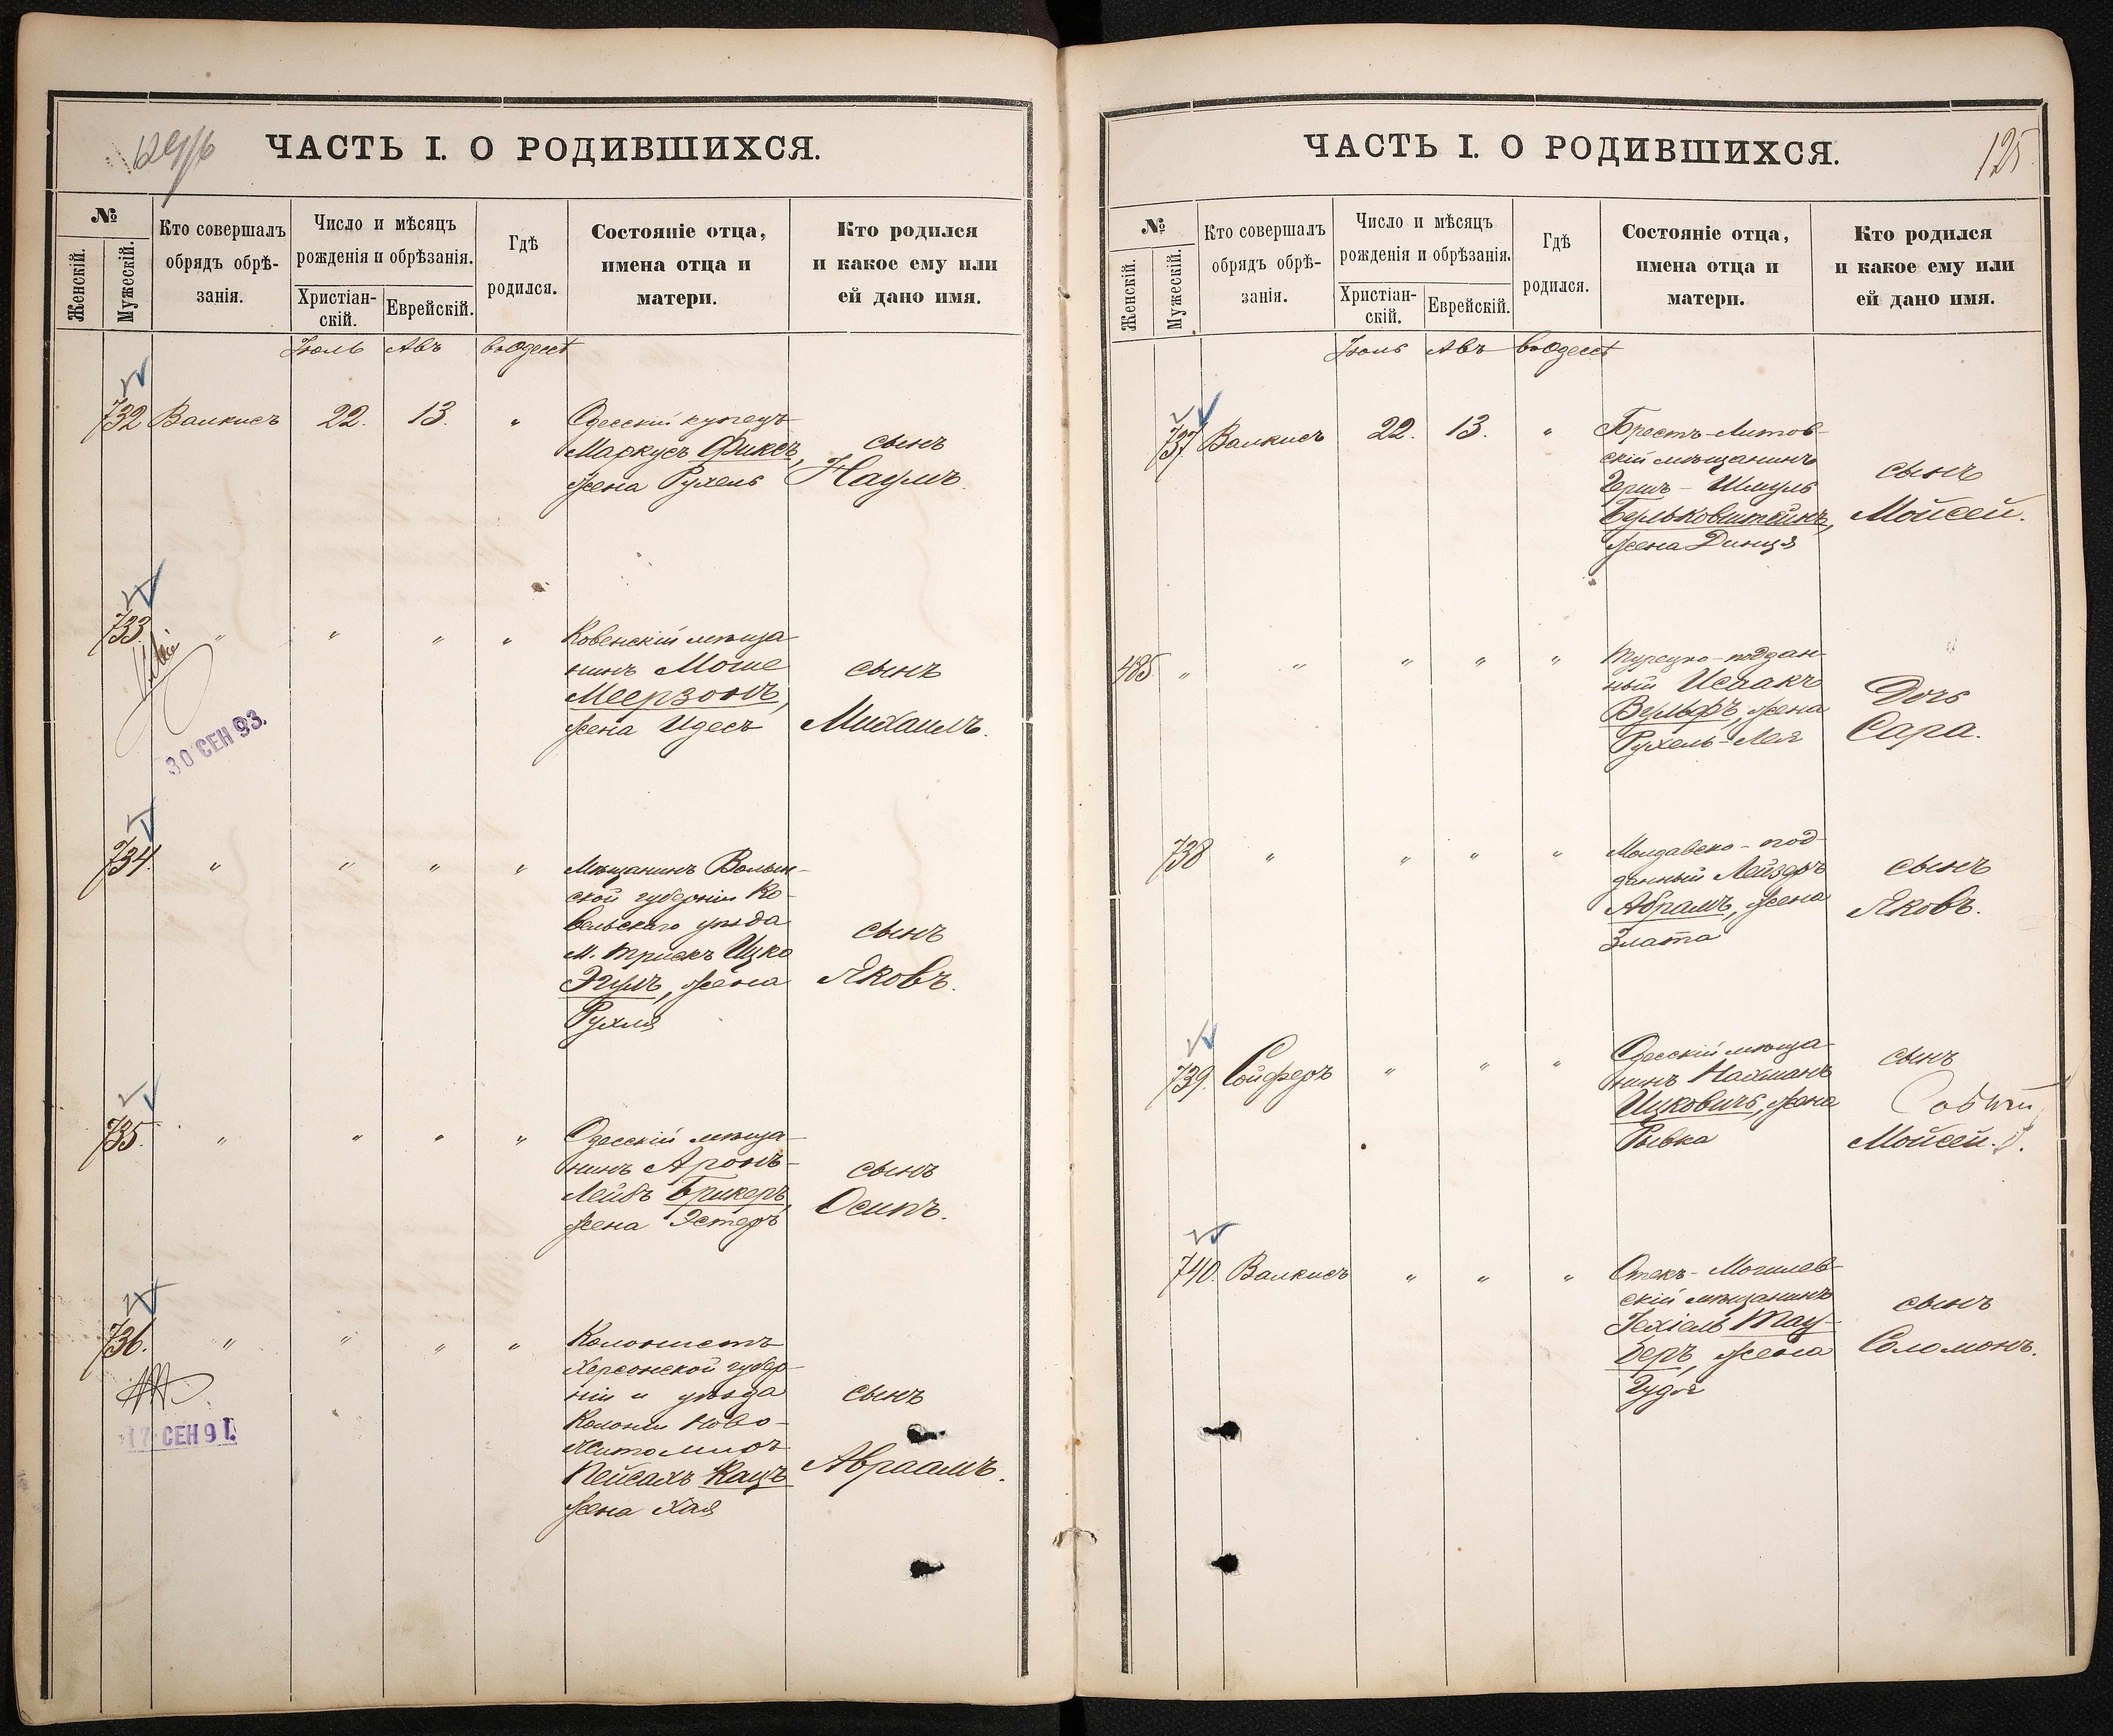 ЧАСТЬ I. О РОДИВШИХСЯ.
№
Женскій.
Мужескій.
Кто совершалъ
обрядъ обрѣ-
занія.
Число и мѣсяцъ
рожденія и обрѣзанія.
Христіан-
скій.
Еврейскій.
Гдѣ
родился.
Состояніе отца,
имена отца и
матери.
Кто родился
и какое ему или
ей дано имя.
Іюль Авъ въ Одессѣ
732 Валкисъ 22. 13. " Одесскій купецъ
Маркусъ Фиксъ,
жена Рухель
сынъ
Наумъ.
733. " " " " Ковенскій мѣща-
нинъ Моше
Меерзонъ,
жена Идесъ
сынъ
Михаилъ.
30 СЕН 93.
734. " " " " Мѣщанинъ Волын-
ской губерніи Ко-
вельскаго уѣзда
м. Трискъ Ицко
Эгумъ, жена
Рухля
сынъ
Яковъ.
735. " " " " Одесскій мѣща-
нинъ Аронъ-
Лейбъ Брикеръ,
жена Эстеръ
сынъ
Осипъ.
736. " " " " Колонистъ
Херсонской губер-
ніи и уѣзда
Колоніи Ново-
Житомиръ
Пейсахъ Кацъ
жена Хая
сынъ
Авраамъ.
17 СЕН 91.
ЧАСТЬ I. О РОДИВШИХСЯ.
125
№
Женскій.
Мужескій.
Кто совершалъ
обрядъ обрѣ-
занія.
Число и мѣсяцъ
рожденія и обрѣзанія.
Христіан-
скій.
Еврейскій.
Гдѣ
родился.
Состояніе отца,
имена отца и
матери.
Кто родился
и какое ему или
ей дано имя.
Іюль Авъ въ Одессѣ
737 Валкисъ 22. 13. " Брестъ-Литов-
скій мѣщанинъ
Гершъ-Шмуль
Берьковштейнъ,
жена Динця
сынъ
Мойсей.
485 " " " " " Турецко-поддан-
ный Исаакъ
Вульфъ, жена
Рухель-Лея
Дочь
Сара.
738 " " " " Молдавско-под-
данный Лейзеръ
Абрамъ, жена
Злата
сынъ
Яковъ.
739. Сойферъ " " " Одесскій мѣща-
нинъ Нахманъ
Ицковичъ, жена
Рывка
сынъ
Мойсей.
740. Валкисъ " " " Могилев-
скій мѣщанинъ
Іехіель Тау-
беръ, жена
сынъ
Соломонъ.